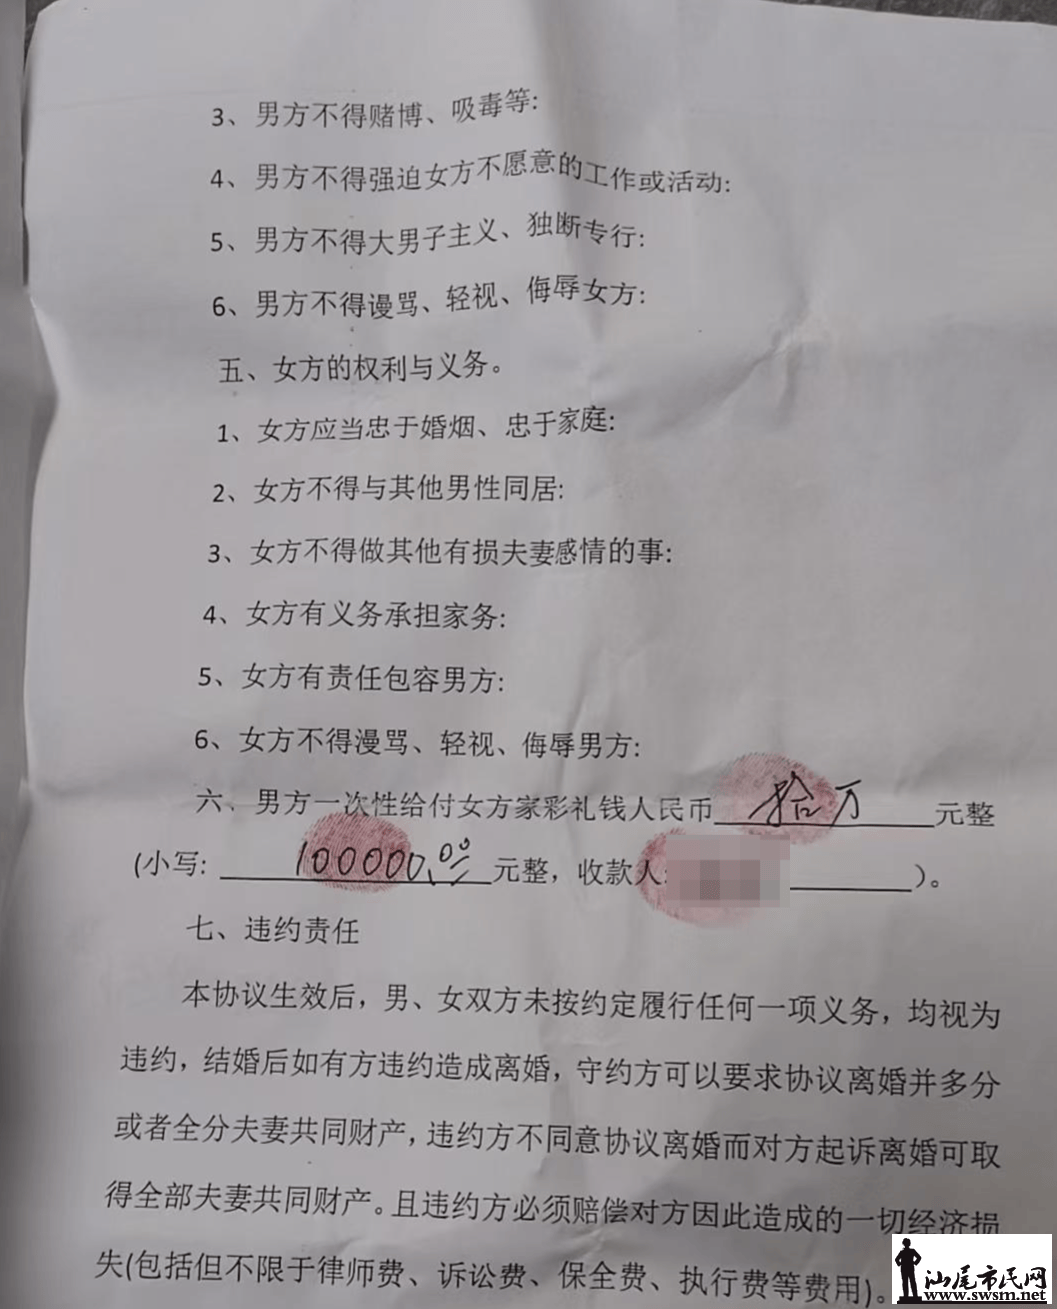 3、男方不得赌博、吸毒等:
4、男方不得强迫女方不愿意的工作或活动:
5、男方不得大男子主义、独断专行:
6、男方不得谩骂、轻视、侮辱女方:
五、女方的权利与义务。
1、女方应当忠于婚烟、忠于家庭:
2、女方不得与其他男性同居:
3、女方不得做其他有损夫妻感情的事:
4、女方有义务承担家务:
5、女方有责任包容男方:
6、女方不得漫骂、轻视、侮辱男方:
六、男方一次性给付女方家彩礼钱人民币 拾万 元整
(小写: 100000.00 元整，收款人: )。
七、违约责任
本协议生效后，男、女双方未按约定履行任何一项义务，均视为
违约，结婚后如有方违约造成离婚，守约方可以要求协议离婚并多分
或者全分夫妻共同财产，违约方不同意协议离婚而对方起诉离婚可取
得全部夫妻共同财产。且违约方必须赔偿对方因此造成的一切经济损
失(包括但不限于律师费、诉讼费、保全费、执行费等费用)。
汕尾市民网
www.swsm.net